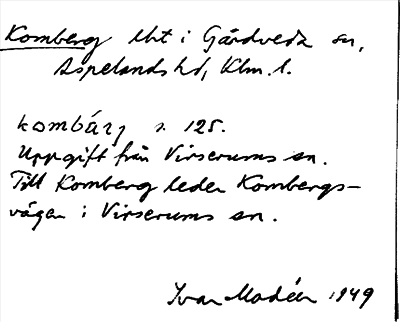 Komberg lht i Gårdveda sn,
Aspelands hd, Klm. l.
kombärj s. 125.
Uppgift från Virserums sn.
Till Komberg leder Kombergs-
vägen i Virserums sn.
Ivar Modéer 1949